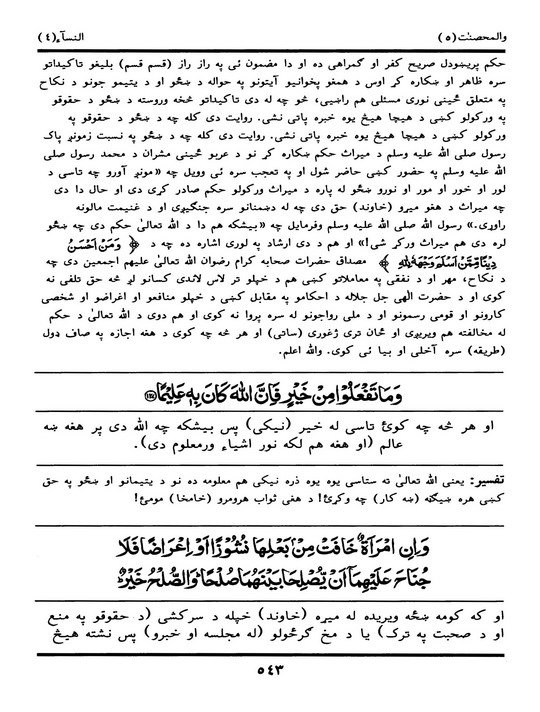 والمحصنٰت (٥) النسآء (٤)
حکم پریښودل صریح کفر او گمراهی ده او دا مضمون ئی په راز راز (قسم قسم) بلیغو تاکیداتو
سره ظاهر او ښکاره کړ اوس د همغو پخوانیو آیتونو په حواله د ښځو او د یتیمو جونو د نکاح
په متعلق ځینی نوری مسئلی هم راضیی، څو چه له دی تاکیداتو څخه وروسته د ښځو د حقوقو
په ورکولو کښی د هیچا هیڅ یوه خبره پاتی نشی. روایت دی کله چه د ښځو د حقوقو په
ورکولو کښی د هیچا هیڅ یوه خبره پاتی نشی. روایت دی کله چه د ښځو په نسبت زمونږ پاک
رسول صلی الله علیه وسلم د میراث حکم ښکاره کړ نو د عربو ځینی مشران د محمد رسول صلی
الله علیه وسلم په حضور کښی حاضر شول او په تعجب سره ئی وویل چه «مونږ آورو چه تاسی د
لور او خور او مور او نورو ښځو له پاره د میراث ورکولو حکم صادر کړی دی او حال دا دی
چه میراث د هغو میړو (خاوند) حق دی چه له دښمنانو سره جنگیږی او د غنیمت مالونه
راوړی.» رسول الله صلی الله علیه وسلم وفرمایل چه «بیشکه هم دا د الله تعالیٰ حکم دی چه ښځو
لره دی هم میراث ورکړ شی!» او هم د دی ارشاد په لوری اشاره ده چه د ﴿ وَمَنْ اَحْسَنُ
دِيْنًا مِّمَّنْ اَسْلَمَ وَجْهَهٗ لِلّٰهِ ﴾ مصداق حضرات صحابه کرام رضوان الله تعالیٰ علیهم اجمعین دی چه
د نکاح، مهر او د نفقی په معاملاتو کښی هم د خپلو تر لاس لاندی کسانو لږ څه حق تلفی نه
کوی او د حضرت الٰهی جل جلاله د احکامو په مقابل کښی د خپلو منافعو او اغراضو او شخصی
کارونو او قومی رسمونو او د ملی رواجونو له سره پروا نه کوی او هم دوی د الله تعالیٰ د حکم
له مخالفته هم ویریږی او ځان تری ژغوری (ساتی) او هر څه چه کوی د هغه اجازه په صاف ډول
(طریقه) سره آخلی او بیا ئی کوی. والله اعلم.
وَمَا تَفْعَلُوْا مِنْ خَيْرٍ فَاِنَّ اللّٰهَ كَانَ بِهٖ عَلِيْمًا ﴿١٢٧﴾
او هر څه چه کوئ تاسی له خیر (نیکی) پس بیشکه چه الله دی پر هغه ښه
عالم (او هغه هم لکه نور اشیاء ورمعلوم دی).
تفسیر: یعنی الله تعالیٰ ته ستاسی یوه یوه ذره نیکی هم معلومه ده نو د یتیمانو او ښځو په حق
کښی هره ښیګڼه (ښه کار) چه وکړئ! د هغی ثواب هرومرو (خامخا) مومئ!
وَاِنِ امْرَاَةٌ خَافَتْ مِنْۢ بَعْلِهَا نُشُوْزًا اَوْ اِعْرَاضًا فَلَا
جُنَاحَ عَلَيْهِمَآ اَنْ يُّصْلِحَا بَيْنَهُمَا صُلْحًا ۭ وَالصُّلْحُ خَيْرٌ ۭ
او که کومه ښځه ویریده له میړه (خاوند) خپله د سرکشی (د حقوقو په منع
او د صحبت په ترک) یا د مخ گرځولو (له مجلسه او خبرو) پس نشته هیڅ
٥٤٣